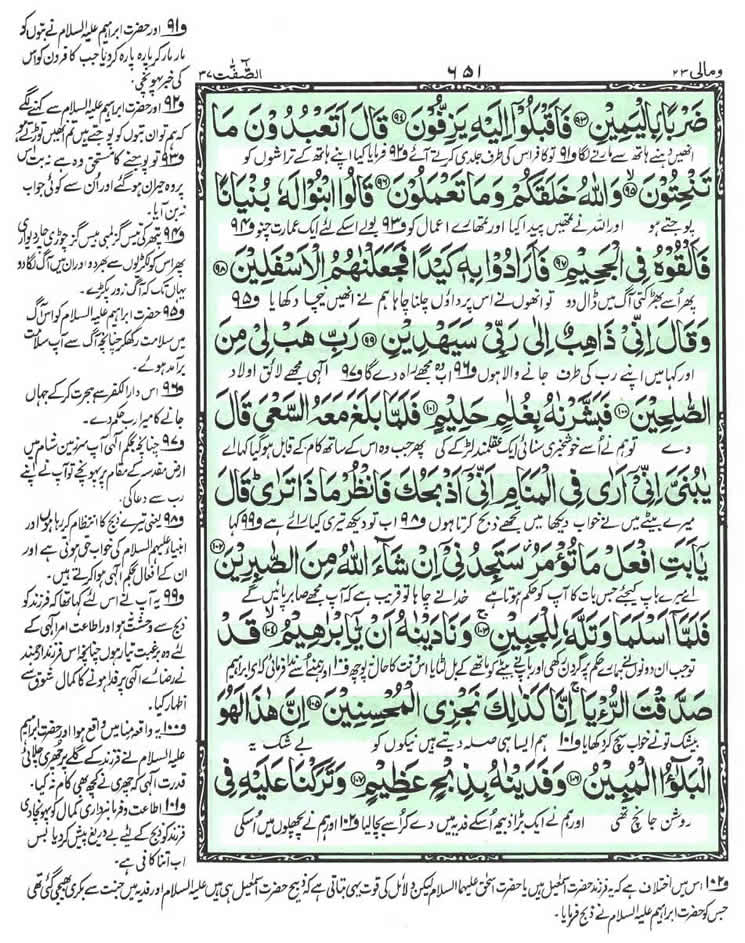 ومالی ۲۳
۶۵۱
الصّٰٓفّٰت ۳۷
ضَرْبًۢا بِالْیَمِیْنِ ﴿۹۳﴾ فَاَقْبَلُوْۤا اِلَیْهِ یَزِفُّوْنَ ﴿۹۴﴾ قَالَ اَتَعْبُدُوْنَ مَا
انھیں دہنے ہاتھ سے مارنے لگا ف۹۱ تو کافر اس کی طرف جلدی کرتے آئے ف۹۲ فرمایا کیا اپنے ہاتھ کے تراشوں کو
تَنْحِتُوْنَ ﴿۹۵﴾ وَاللّٰهُ خَلَقَكُمْ وَمَا تَعْمَلُوْنَ ﴿۹۶﴾ قَالُوا ابْنُوْا لَهٗ بُنْیَانًا
پوجتے ہو اور اللہ نے تمھیں پیدا کیا اور تمھارے اعمال کو ف۹۳ بولے اسکے لئے ایک عمارت چنو ف۹۴
فَاَلْقُوْهُ فِی الْجَحِیْمِ ﴿۹۷﴾ فَاَرَادُوْا بِهٖ كَیْدًا فَجَعَلْنٰهُمُ الْاَسْفَلِیْنَ ﴿۹۸﴾
پھر اُسے بھڑکتی آگ میں ڈال دو تو انھوں نے اس پر داؤں چلنا چاہا ہم نے انھیں نیچا دکھایا ف۹۵
وَقَالَ اِنِّیْ ذَاهِبٌ اِلٰی رَبِّیْ سَیَهْدِیْنِ ﴿۹۹﴾ رَبِّ هَبْ لِیْ مِنَ
اور کہا میں اپنے رب کی طرف جانے والا ہوں ف۹۶ اب وہ مجھے راہ دے گا ف۹۷ الٰہی مجھے لائق اولاد
الصّٰلِحِیْنَ ﴿۱۰۰﴾ فَبَشَّرْنٰهُ بِغُلٰمٍ حَلِیْمٍ ﴿۱۰۱﴾ فَلَمَّا بَلَغَ مَعَهُ السَّعْیَ قَالَ
دے تو ہم نے اُسے خوشخبری سنائی ایک عقلمند لڑکے کی پھر جب وہ اس کے ساتھ کام کے قابل ہوگیا کہا اے
یٰبُنَیَّ اِنِّیْۤ اَرٰی فِی الْمَنَامِ اَنِّیْۤ اَذْبَحُكَ فَانْظُرْ مَاذَا تَرٰی قَالَ
میرے بیٹے میں نے خواب دیکھا میں تجھے ذبح کرتا ہوں ف۹۸ اب تو دیکھ تیری کیا رائے ہے ف۹۹ کہا
یٰۤاَبَتِ افْعَلْ مَا تُؤْمَرُ سَتَجِدُنِیْۤ اِنْ شَآءَ اللّٰهُ مِنَ الصّٰبِرِیْنَ ﴿۱۰۲﴾
اے میرے باپ کیجئے جس بات کا آپ کو حکم ہوتا ہے خدا نے چاہا تو قریب ہے کہ آپ مجھے صابر پائیں گے
فَلَمَّاۤ اَسْلَمَا وَتَلَّهٗ لِلْجَبِیْنِ ﴿۱۰۳﴾ وَنَادَیْنٰهُ اَنْ یّٰۤاِبْرٰهِیْمُ ﴿۱۰۴﴾ قَدْ
توجب ان دونوں نے ہمارے حکم پر گردن رکھی اور باپ نے بیٹے کو ماتھے کے بل لٹایا اس وقت کا حال نہ پوچھ ف۱۰۰ اور ہم نے اُسے ندا فرمائی کہ اے ابراہیم
صَدَّقْتَ الرُّءْیَا اِنَّا كَذٰلِكَ نَجْزِی الْمُحْسِنِیْنَ ﴿۱۰۵﴾ اِنَّ هٰذَا لَهُوَ
بیشک تو نے خواب سچ کر دکھایا ف۱۰۱ ہم ایسا ہی صلہ دیتے ہیں نیکوں کو بے شک یہ
الْبَلٰٓؤُا الْمُبِیْنُ ﴿۱۰۶﴾ وَفَدَیْنٰهُ بِذِبْحٍ عَظِیْمٍ ﴿۱۰۷﴾ وَتَرَكْنَا عَلَیْهِ فِی
روشن جانچ تھی اور ہم نے ایک بڑا ذبیحہ اُسکے فدیہ میں دے کر اُسے بچالیا ف۱۰۲ اور ہم نے پچھلوں میں اُسکی
ف۹۱ اور حضرت ابراہیم علیہ السلام نے بتوں کو
مار مار کر پارہ پارہ کردیا جب کافروں کو اس
کی خبر پہونچی۔
ف۹۲ اور حضرت ابراہیم علیہ السلام سے کہنے لگے
کہ ہم تو ان بتوں کو پوجتے ہیں تم انھیں توڑتے ہو
ف۹۳ تو پوجنے کا مستحق وہ ہے نہ بت اس
پر وہ حیران ہوگئے اور اُن سے کوئی جواب
نہ بن آیا۔
ف۹۴ پتھر کی تیس گز لمبی بیس گز چوڑی چار دیواری
پھر اس کو لکڑیوں سے بھر دو اور ان میں آگ لگا دو
یہاں تک کہ آگ زور پکڑے۔
ف۹۵ حضرت ابراہیم علیہ السلام کو اس آگ
میں سلامت رکھ کر چنانچہ آگ سے آپ سلامت
برآمد ہوئے۔
ف۹۶ اس دارالکفر سے ہجرت کر کے جہاں
جانے کا میرا رب حکم دے۔
ف۹۷ چنانچہ بحکم الٰہی آپ سرزمین شام میں
ارض مقدسہ کے مقام پر پہونچے تو آپ نے اپنے
رب سے دعا کی۔
ف۹۸ یعنی تیرے ذبح کا انتظام کر رہا ہوں اور
انبیا علیہم السلام کی خواب حق ہوتی ہے اور
ان کے افعال بحکم الٰہی ہوا کرتے ہیں۔
ف۹۹ یہ آپ نے اس لئے کہا تھا کہ فرزند کو
ذبح سے وحشت نہ ہو اور اطاعت امر الٰہی کے
لئے وہ برغبت تیار ہوں چنانچہ اس فرزند ارجمند
نے رضائے الٰہی پر فدا ہونے کا کمال شوق سے
اظہار کیا۔
ف۱۰۰ یہ واقعہ منا میں واقع ہوا اور حضرت ابراہیم
علیہ السلام نے فرزند کے گلے پر چھری چلائی
قدرت الٰہی کہ چھری نے کچھ بھی کام نہ کیا۔
ف۱۰۱ اطاعت و فرمانبرداری کمال کو پہونچا دی
فرزند کو ذبح کے لئے بے دریغ پیش کردیا بس
اب اتنا کافی ہے۔
ف۱۰۲ اس میں اختلاف ہے کہ یہ فرزند حضرت اسمٰعیل ہیں یا حضرت اسحٰق علیہما السلام لیکن دلائل کی قوت یہی بتاتی ہے کہ ذبیح حضرت اسمٰعیل ہی ہیں علیہ السلام اور فدیہ میں جنت سے بکری بھیجی گئی تھی
جس کو حضرت ابراہیم علیہ السلام نے ذبح فرمایا۔